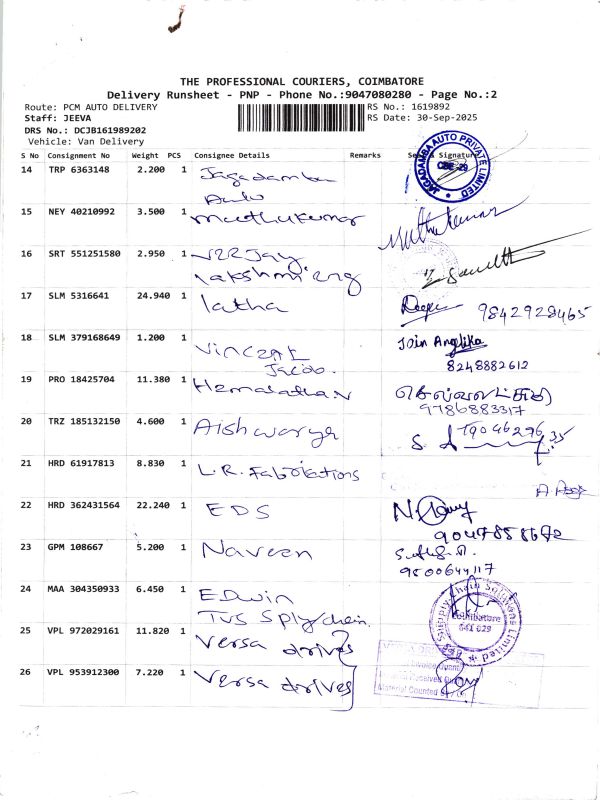 THE PROFESSIONAL COURIERS, COIMBATORE
Delivery Runsheet - PNP - Phone No.:9047080280 - Page No.:2
Route: PCM AUTO DELIVERY
RS No.: 1619892
Staff: JEEVA
RS Date: 30-Sep-2025
DRS No.: DCJB161989202
Vehicle: Van Delivery
S No Consignment No Weight PCS Consignee Details Remarks Seal & Signature
JAGADAMBA AUTO PRIVATE LIMITED
14 TRP 6363148 2.200 1 Jagadamba
Auto
15 NEY 40210992 3.500 1 Muthukumar
Muthukumar
16 SRT 551251580 2.950 1
lakshmi eng
17 SLM 5316641 24.940 1 latha
Deepa 9842928465
18 SLM 379168649 1.200 1 Vincent
Jacob.
Join Angelika
8248882612
19 PRO 18425704 11.380 1 Hemalatha.v
செல்வலட்சுமி
9786883317
20 TRZ 185132150 4.600 1 Aishwarya
21 HRD 61917813 8.830 1 L.R. Fabrications
22 HRD 362431564 22.240 1 EDS
23 GPM 108667 5.200 1 Naveen
9500644117
24 MAA 304350933 6.450 1 Edwin
TVS Splychain.
Coimbatore
25 VPL 972029161 11.820 1 Versa drives
26 VPL 953912300 7.220 1 Versa drives